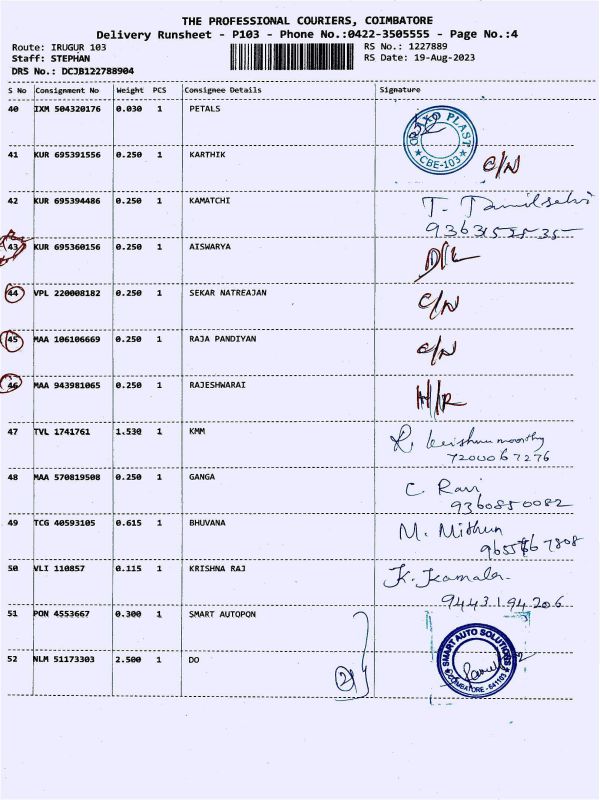 THE PROFESSIONAL COURIERS, COIMBATORE
Delivery Runsheet - P103 - Phone No.:0422-3505555 - Page No.:4
Route: IRUGUR 103
RS No.: 1227889
Staff: STEPHAN
RS Date: 19-Aug-2023
DRS No.: DCJB122788904
S No Consignment No Weight PCS Consignee Details Signature
40 IXM 504320176 0.030 1 PETALS
PLAST
CBE-103
41 KUR 695391556 0.250 1 KARTHIK C/N
42 KUR 695394486 0.250 1 KAMATCHI T. Tamilselvi
43 KUR 695360156 0.250 1 AISWARYA D/L
44 VPL 220008182 0.250 1 SEKAR NATREAJAN C/N
45 MAA 106106669 0.250 1 RAJA PANDIYAN C/N
46 MAA 943981065 0.250 1 RAJESHWARAI H/R
47 TVL 1741761 1.530 1 KMM R. krishnamoorthy
7200067276
48 MAA 570819508 0.250 1 GANGA C Ravi
9360850082
49 TCG 40593105 0.615 1 BHUVANA M. Mithun
50 VLI 110857 0.115 1 KRISHNA RAJ K. Kamala
9443194206
51 PON 4553667 0.300 1 SMART AUTOPON
SMART AUTO SOLUTIONS
COIMBATORE - 641103
52 NLM 51173303 2.500 1 DO